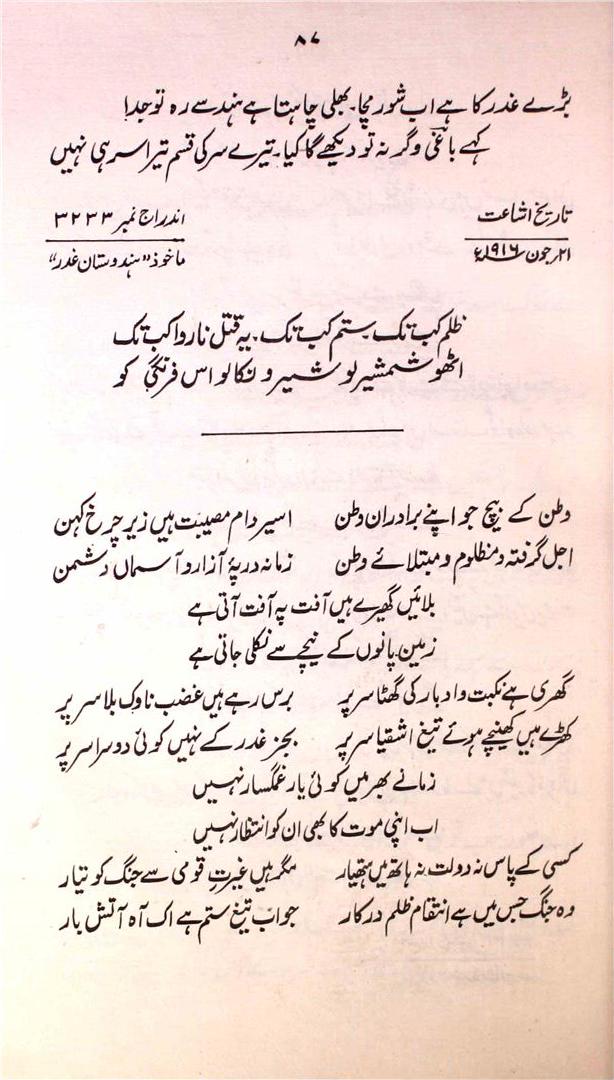 ۸۷
بڑے غدر کا ہے اب شور مچا۔ بھلی چاہتا ہے ہند سے رہ تو جدا
کہے باغی وگرنہ تو دیکھے گا کیا۔ تیرے سر کی قسم تیرا سر ہی نہیں
تاریخ اشاعت اندراج نمبر ۳۲۳۳
۲۱ر جون ۱۹۱۶ء ماخوذ "ہندوستان غدر"
ظلم کب تک۔ ستم کب تک۔ یہ قتل ناروا کب تک
اٹھو شمشیر لو شیرو نکالو اس فرنگی کو
وطن کے بیچ جو اپنے برادران وطن اسیر دام مصیبت ہیں زیر چرخ کہن
اجل گرفتہ و مظلوم و مبتلائے وطن زمانہ در پۂ آزار و آسماں دشمن
بلائیں گھیرے ہیں آفت پہ آفت آتی ہے
زمین پانوں کے نیچے سے نکلی جاتی ہے
گھری ہے نکبت و ادبار کی گھٹا سر پر برس رہے ہیں غضب ناوک بلا سر پر
کھڑے ہیں کھینچے ہوئے تیغ اشقیا سر پر بجز غدر کے نہیں کوئی دوسرا سر پر
زمانے بھر میں کوئی یار غمگسار نہیں
اب اپنی موت کا بھی ان کو انتظار نہیں
کسی کے پاس نہ دولت نہ ہاتھ میں ہتھیار مگر ہیں غیرتِ قومی سے جنگ کو تیار
وہ جنگ جس میں ہے انتقام ظلم درکار جواب تیغ ستم ہے اک آہ آتش بار